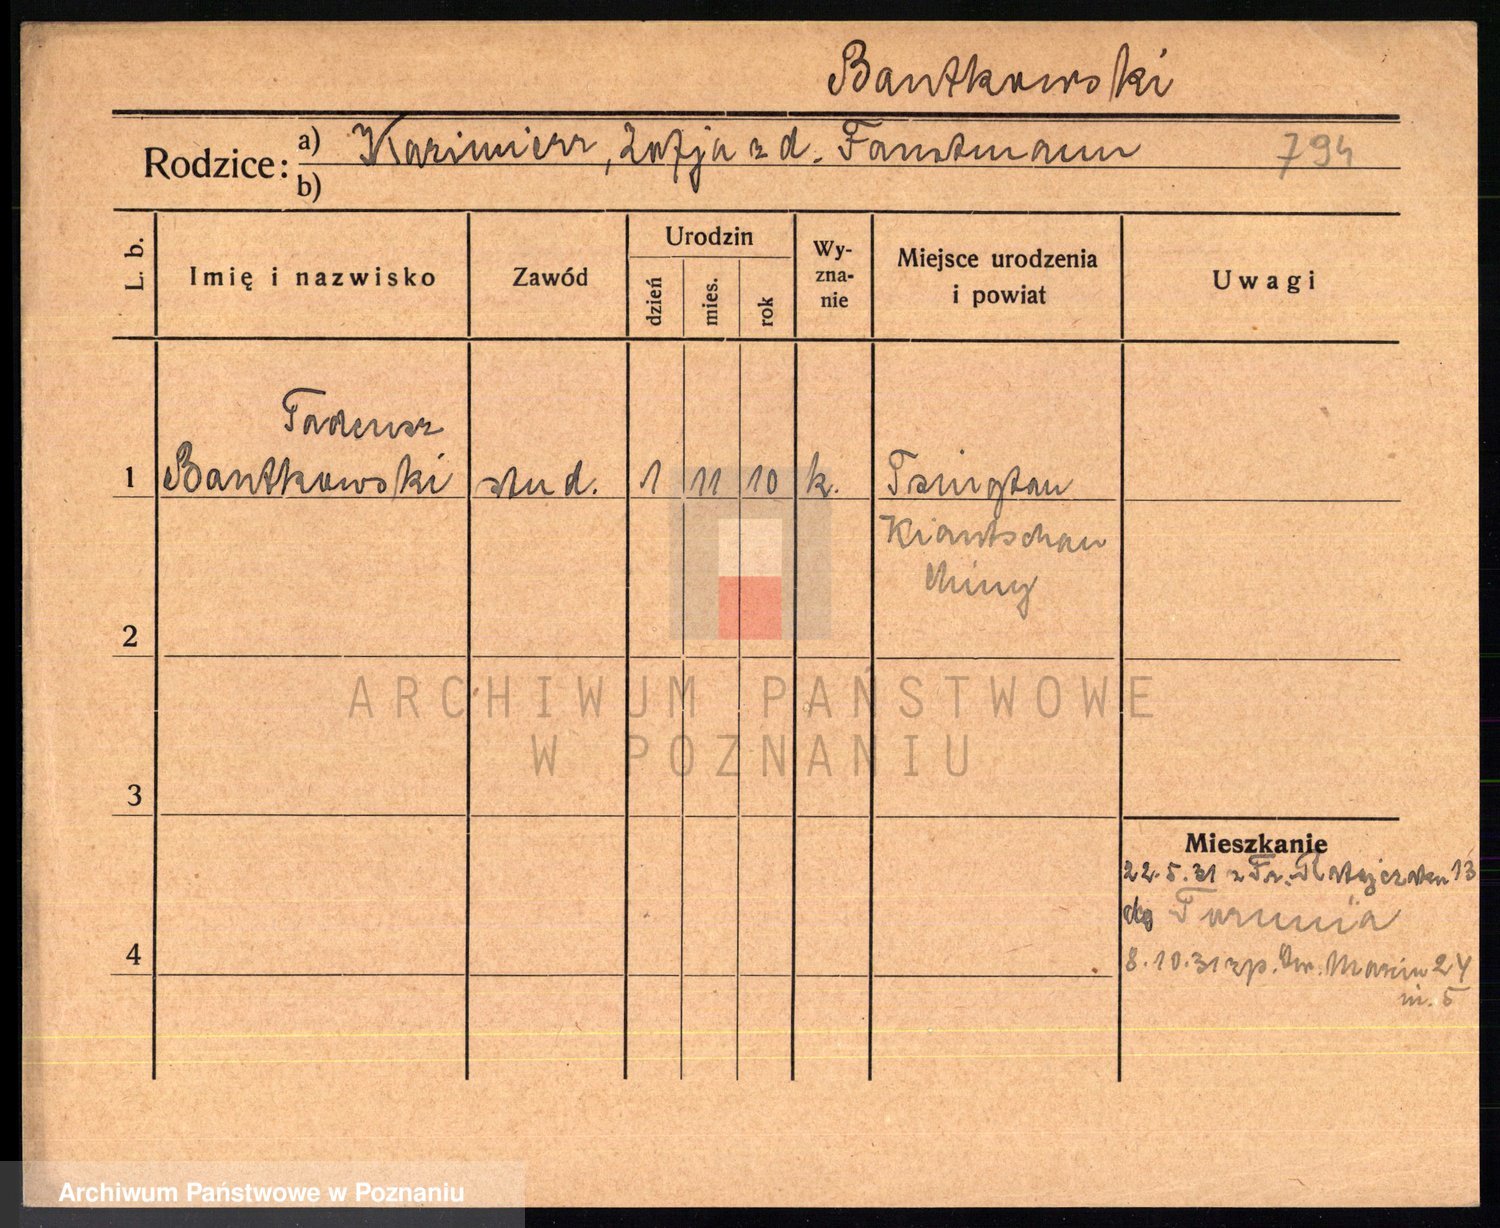 Bantkowski
Rodzice: a) Kazimierz, Zofja z d. Faustmann 794
b)
L. b. Imię i nazwisko Zawód Urodzin dzień mies. rok Wy-zna-nie Miejsce urodzenia i powiat Uwagi
Tadeusz
1 Bantkowski stud. 1 11 10 k. Tsingtau
Kiautschau
Chiny
2
ARCHIWUM PAŃSTWOWE
W POZNANIU
3
Mieszkanie
22.5.31 z Fr. Ratajczaka 13
do Torunia
4
8.10.31 zp. Św. Marcin 24
m. 5
Archiwum Państwowe w Poznaniu